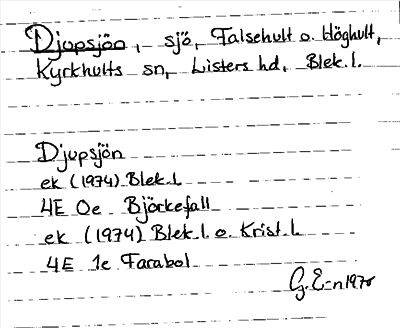 Djupsjön, sjö, Falsehult o. Höghult,
Kyrkhults sn, Listers hd, Blek. l.
Djupsjön
ek (1974) Blek. l.
4E 0e Björkefall
ek (1974) Blek. l. o. Krist. l.
4E 1e Farabol
G. E-n 1978